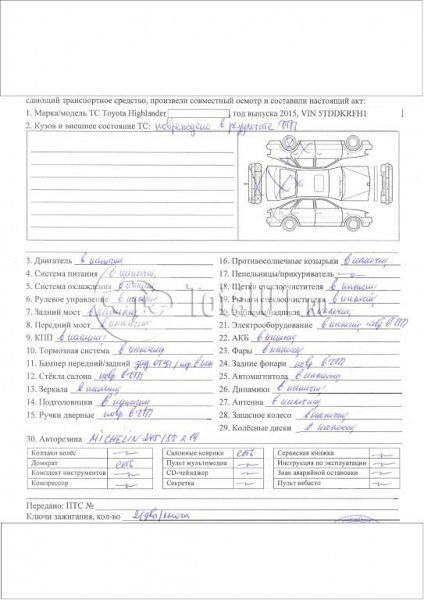 сдающий транспортное средство, произвели совместный осмотр и составили настоящий акт:
1. Марка/модель ТС Toyota Highlander , год выпуска 2015, VIN 5TDDKRFH1 ]
2. Кузов и внешнее состояние ТС: повреждено в результате ДТП
3. Двигатель в наличии 16. Противосолнечные козырьки в наличии
4. Система питания в наличии 17. Пепельницы/прикуриватель —
5. Система охлаждения в наличии 18. Щетки стеклоочистителя в наличии
6. Рулевое управление в наличии 19. Рычаги в наличии
7. Задний мост в наличии 20. в наличии
8. Передний мост в наличии 21. Электрооборудование в наличии повр. в ДТП
9. КПП в наличии 22. АКБ в наличии
10. Тормозная система в наличии 23. Фары в наличии
11. Бампер передний/задний 24. Задние фонари повр. в ДТП
12. Стёкла салона повр. в ДТП 25. Автомагнитола в наличии
13. Зеркала в наличии 26. Динамики в наличии
14. Подголовники в наличии 27. Антенна в наличии
15. Ручки дверные повр. в ДТП 28. Запасное колесо в наличии
29. Колёсные диски в наличии
30. Авторезина MICHELIN 245/55 R19
Колпаки колёс — Салонные коврики есть Сервисная книжка —
Домкрат есть Пульт мультимедиа — Инструкция по эксплуатации —
Комплект инструментов — CD-чейнджер — Знак аварийной остановки —
Компрессор — Секретка — Пульт вебасто —
Передано: ПТС №
Ключи зажигания, кол-во 2 (два) ключа